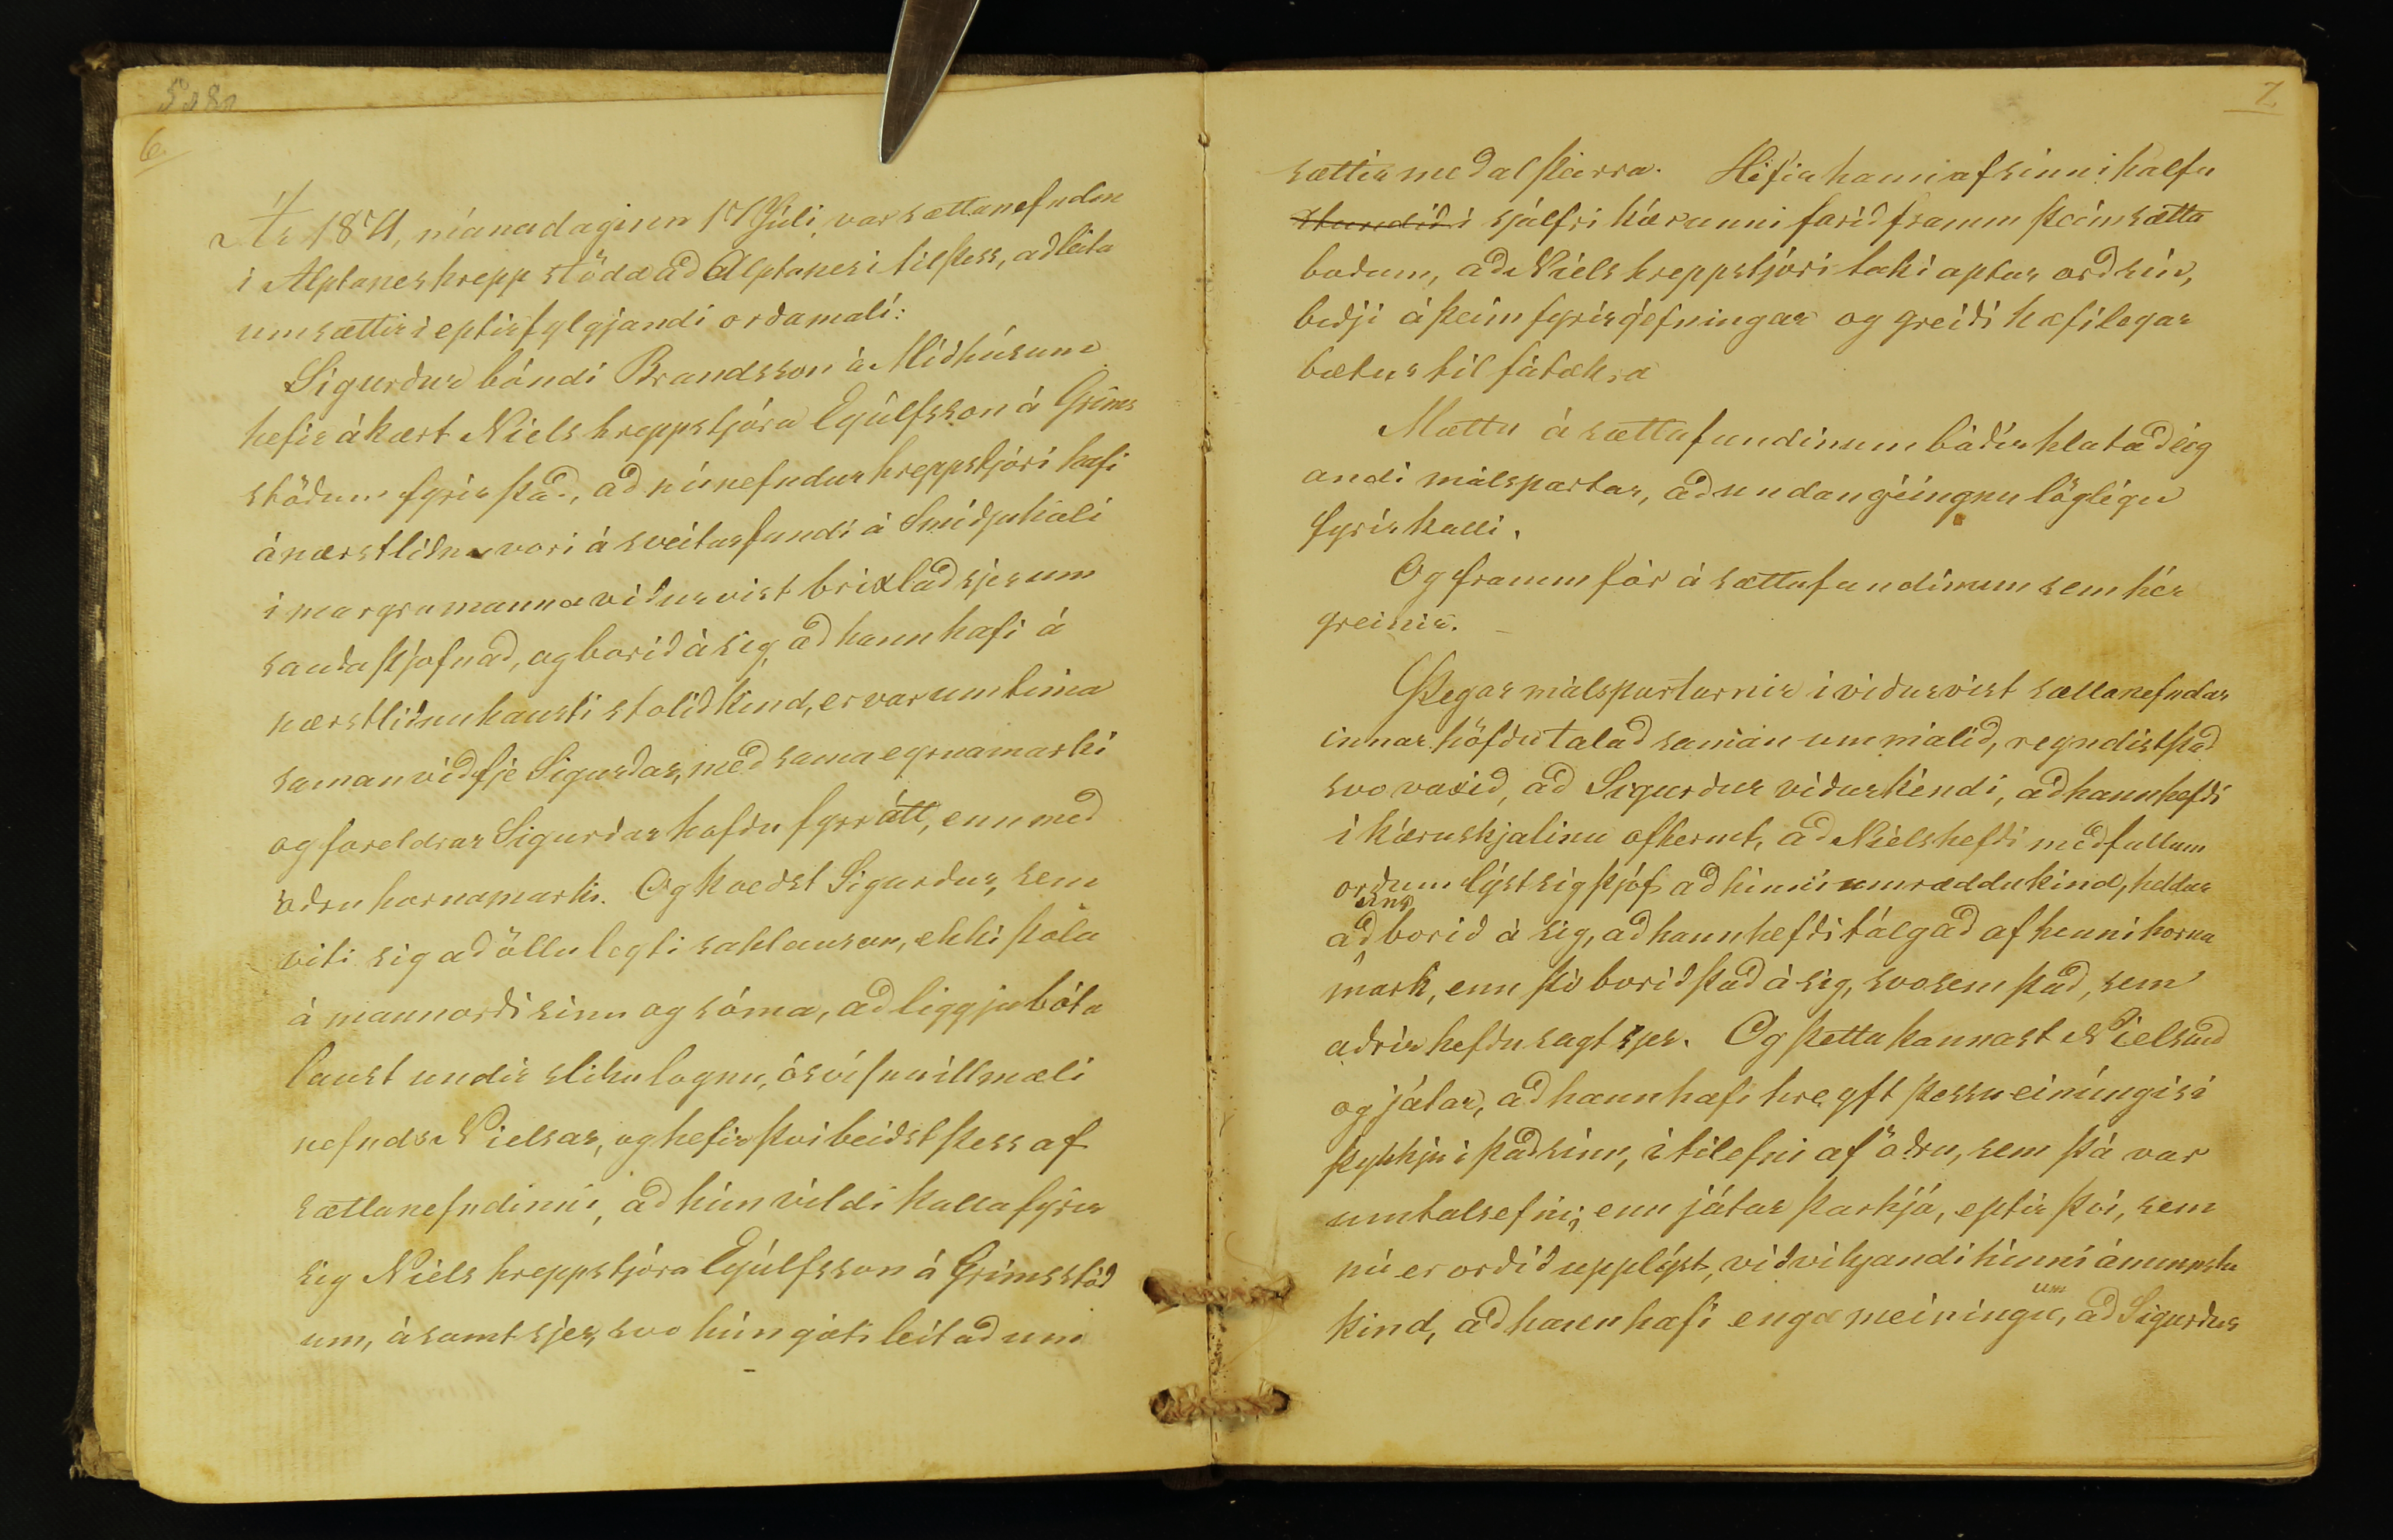 6
Ár 1871, mánadaginn 17 Júli, var sættanefndin
i Alptaneshrepp stödd að Alptanesi til þess, að leita
um sættir i eptirfylgjandi orðamali:
Sigurður bóndi Brandsson á Miðhúsum
hefir ákært Niels hreppstjóra Eyúlfsson á Gríms
stöðum fyrir það, að núnefndur hreppstjóri hafi
á næstliðnu vori á sveitarfundi á Smiðjuhóli
i margra manna viðurvist brixlað sjer um
sauðaþjofnað, og borið á sig, að hann hafi á
næstliðnu hausti stolið kind, er var um tima
saman við fje Sigurðar, með sama eyrnamarki
og foreldrar Sigurðar hafðu fyrr átt, enn með
öðru hornamarki. Og kveðst Sigurður, sem
viti sig að öllu leyti saklausan, ekki þola
á mannorði sinu og sóma, að liggja bóta
laust undir sliku lognu, ósvífnu illmæli
nefnds Nielsar, og hefir þvi beiðst þess af
sættanefndinni, að hún vildi kalla fyrir
sig Niels hreppstjóra Eyúlfsson á Grimsstöð
um, ásamt sjer, svo hún gæti leitað um
7
sættir meðal þeirra. Hefir hann af sinni halfu
i sjálfri kærunni farið framm þeim sætta
boðum, að Niels hreppstjóri taki aptur orð sin,
biðji á þeim fyrirgefningar og greiði hæfilegar
bætur til fátækra
Mættu á sættafundinum báðir hlutaðeig
andi málspartar, að undangeingnu löglegu
fyrirkalli.
Og framm fór á sættafundinum sem hér
greinir. –
Þegar málspartarnir i viðurvist sættanefndar
innar höfðu talað saman um málið, reyndist það
svo vaxið, að Sigurður viðurkendi, að hann hefði
i kæruskjalinu ofhermt, að Niels hefði með fullum
orðum lýst sig þjóf að hinni umræddu kind, heldur
að eins borið á sig, að hann hefði tálgað af henni horna
mark, enn þó borið það á sig, svosem það, sem
aðrir hefðu sagt sjer. Og þetta kannast Niels við
og játar, að hann hafi hreyft þessu einúngis i
þykkju i það sinn, i tilefni af öðru, sem þá var
umtalsefni; enn játar þarhjá, eptir því, sem
nú er orðið upplýst, viðvikjandi hinni ámynnstu
kind, að hann hafi enga meiningu um, að Sigurður